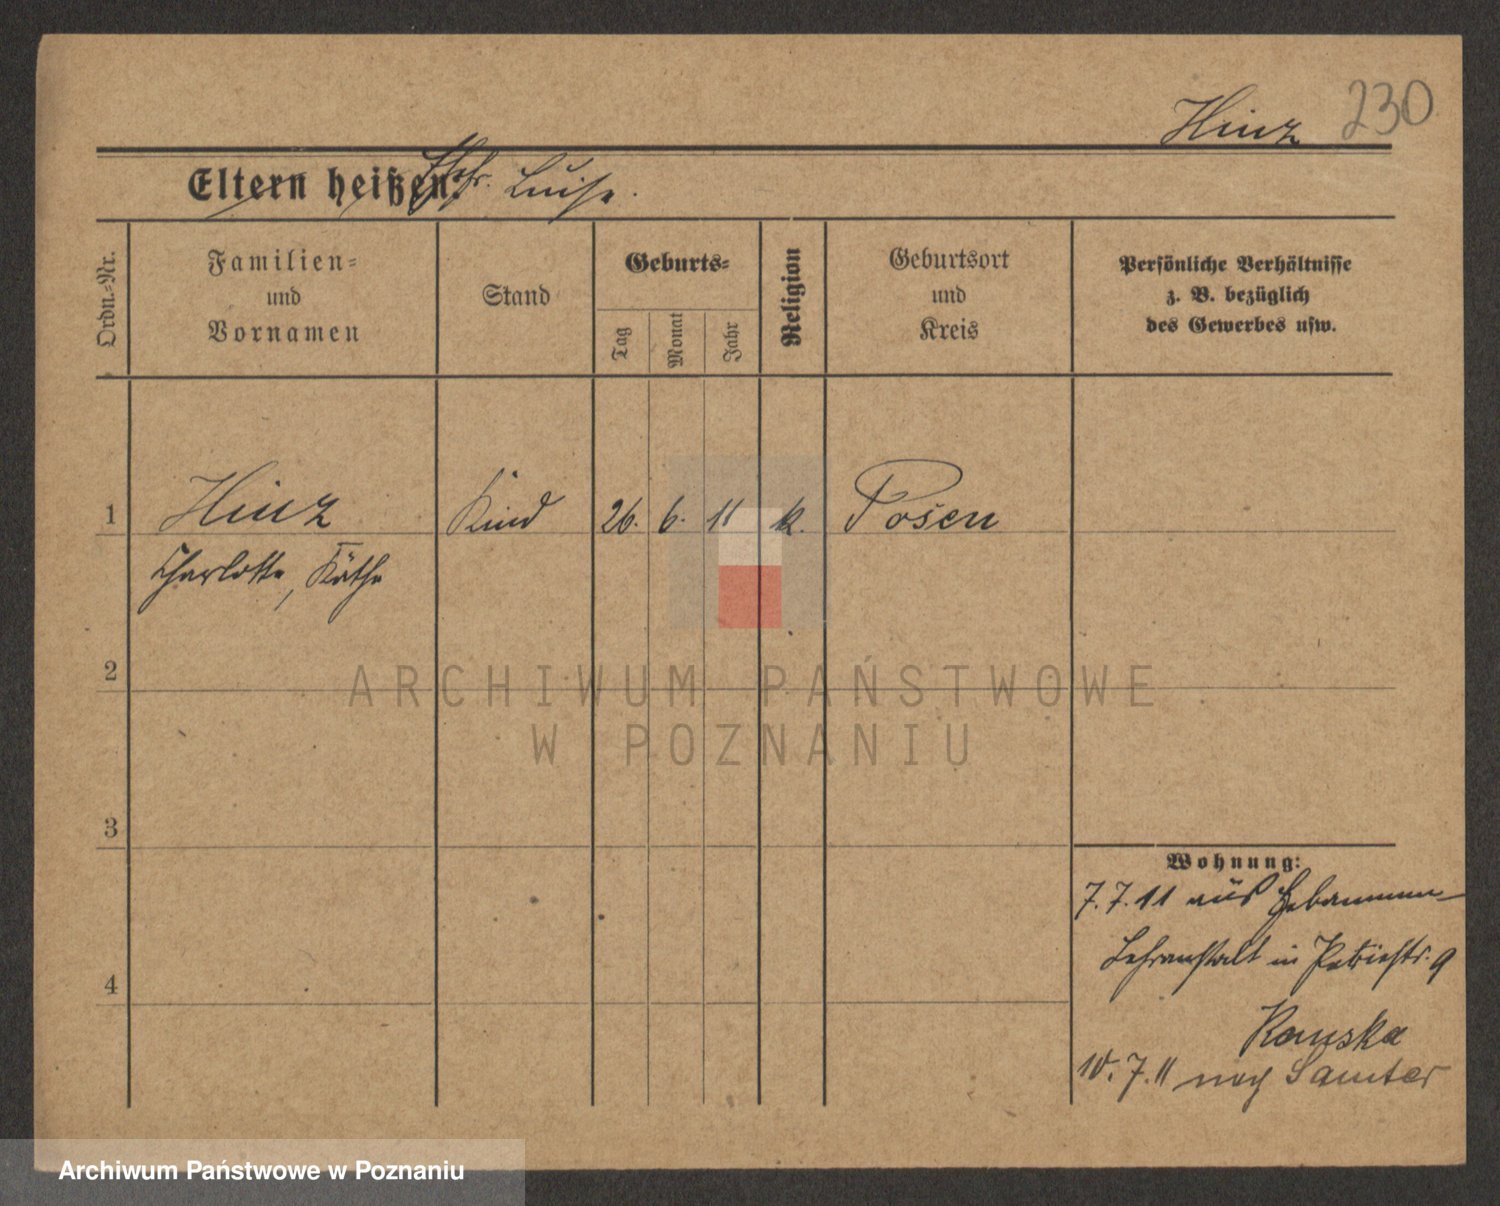 Hinz 230
Eltern heißen: Luise.
Ordn.-Nr.
Familien-
und
Vornamen
Stand
Geburts-
Tag
Monat
Jahr
Religion
Geburtsort
und
Kreis
Persönliche Verhältnisse
z. B. bezüglich
des Gewerbes usw.
1 Hinz Kind 26. 6. 11 k. Posen
Charlotte, Käthe
2
3
4
Wohnung:
7.7.11 aus Hebammen-
Lehranstalt in Petristr. 9
10.7.11 nach Samter
ARCHIWUM PAŃSTWOWE
W POZNANIU
Archiwum Państwowe w Poznaniu